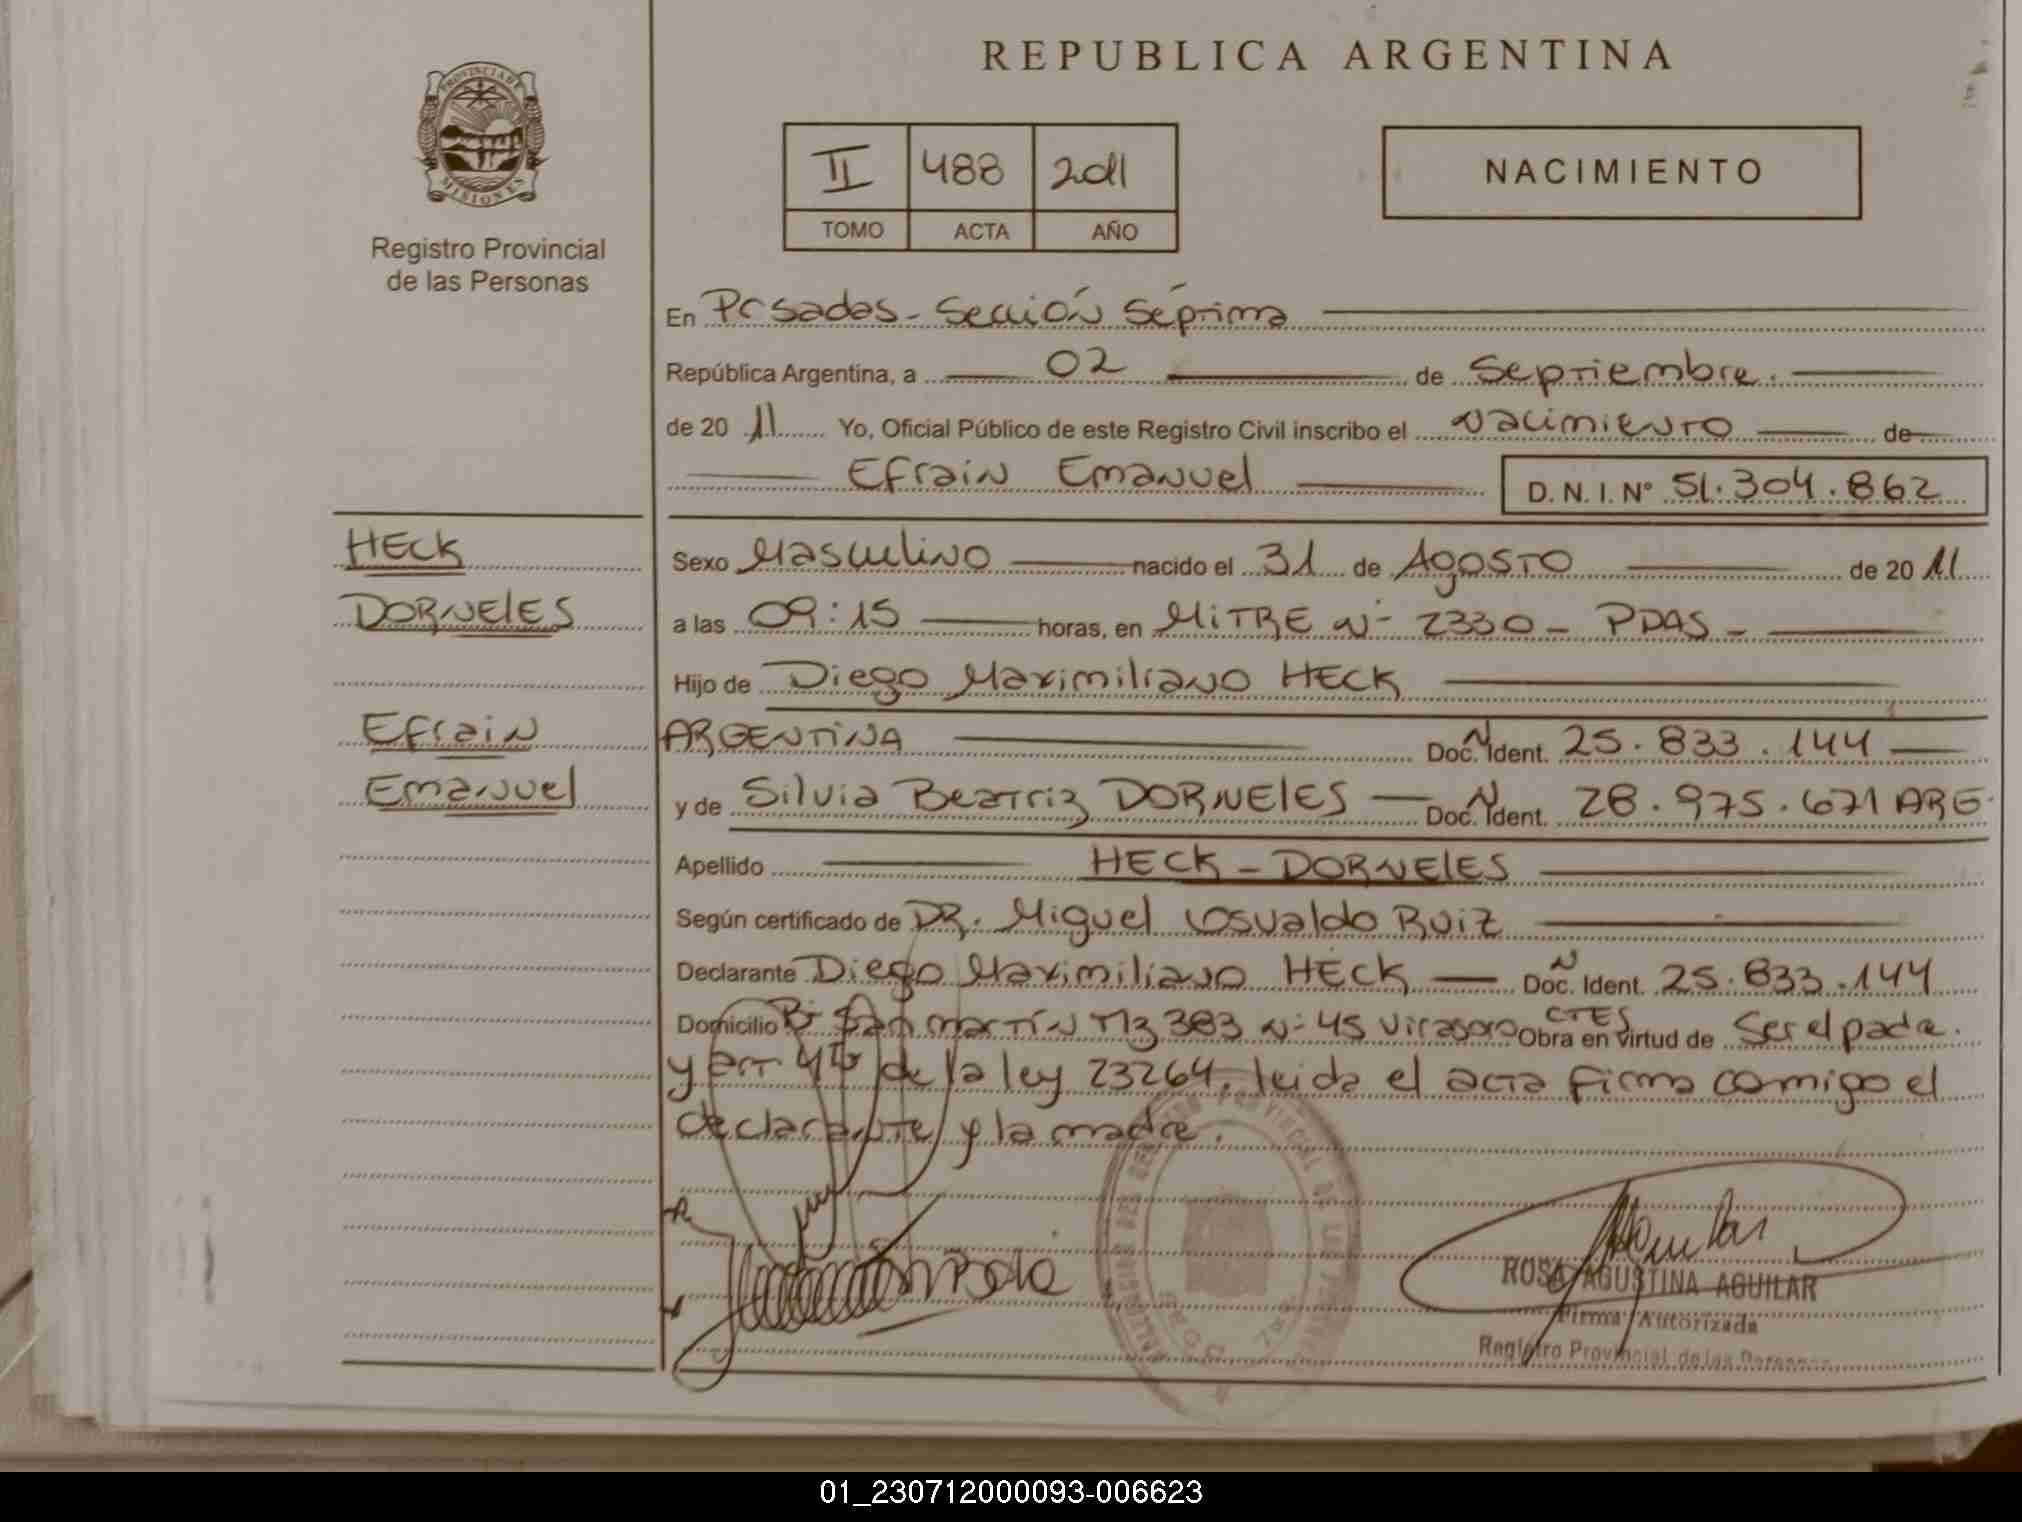 REPUBLICA ARGENTINA
PROVINCIA DE
MISIONES
Registro Provincial
de las Personas
II 488 2011
TOMO ACTA AÑO
NACIMIENTO
En Posadas - Sección Séptima
República Argentina, a 02 de Septiembre.
de 20 11 Yo, Oficial Público de este Registro Civil inscribo el Nacimiento de
Efrain Emanuel D. N. I. Nº 51.304.862
HECK
DORNELES
Efrain
Emanuel
Sexo Masculino nacido el 31 de AgOSTO de 20 11
a las 09:15 horas, en MiTRE Nº 2330 - PDAS -
Hijo de Diego Maximiliano HECK
ARGENTINA Doc. N Ident. 25.833.144
y de Silvia Beatriz DORNELES Doc. N Ident. 28.975.671 ARG.
Apellido HECK - DORNELES
Según certificado de DR. Miguel Osvaldo Ruiz
Declarante Diego Maximiliano HECK Doc. N Ident. 25.833.144
Domicilio Bº San Martín Mz 383 Nº 45 Virasoro CTES Obra en virtud de Ser el padre.
y art de la ley 23264. leida el acta firma comigo el
declarante y la madre.
ROSA AGUSTINA AGUILAR
Firma Autorizada
Registro Provincial de las Personas
01_230712000093-006623